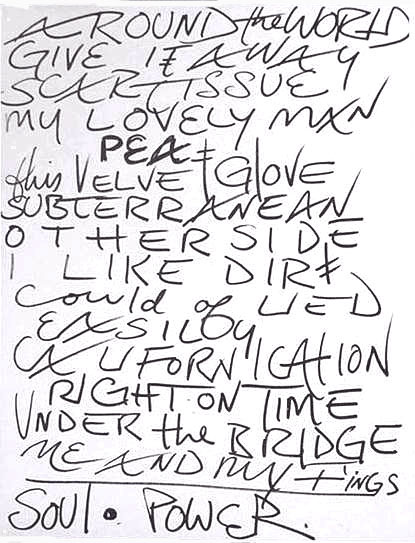 AROUND the WORLD
GIVE IT AWAY
SCAR TISSUE
MY LOVELY MAN
PEA
this VELVET GLOVE
SUBTERRANEAN
OTHERSIDE
I LIKE DIRT
could of LIED
EASILY
CALIFORNICATION
RIGHT ON TIME
UNDER the BRIDGE
ME AND MY
SOUL • POWER.